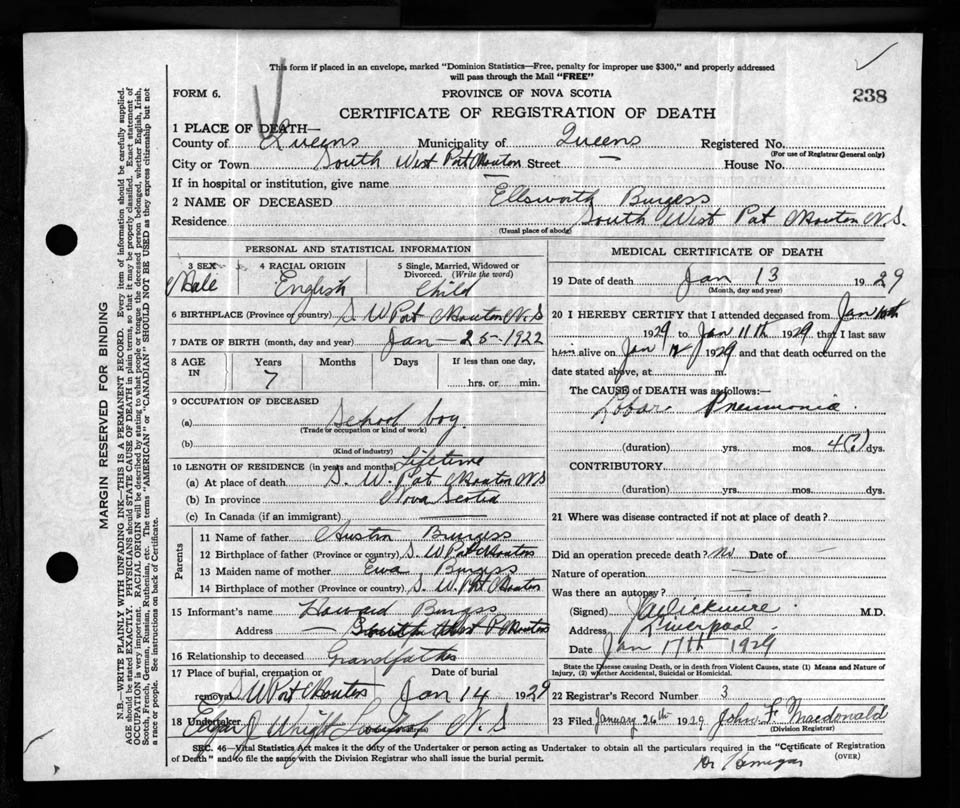 This form if placed in an envelope, marked "Dominion Statistics—Free, penalty for improper use $300," and properly addressed
will pass through the Mail "FREE"
FORM 6. PROVINCE OF NOVA SCOTIA 238
CERTIFICATE OF REGISTRATION OF DEATH
1 PLACE OF DEATH—
County of Queens Municipality of Queens Registered No.
(For use of Registrar General only)
City or Town South West Port Mouton Street — House No.
If in hospital or institution, give name —
2 NAME OF DECEASED Ellsworth Burgess
Residence South West Port Mouton N.S.
(Usual place of abode)
PERSONAL AND STATISTICAL INFORMATION
3 SEX 4 RACIAL ORIGIN 5 Single, Married, Widowed or
Divorced. (Write the word)
Male English Child
6 BIRTHPLACE (Province or country) S. W Port Mouton N.S
7 DATE OF BIRTH (month, day and year) Jan — 25 — 1922
8 AGE IN Years Months Days If less than one day,
7 hrs. or min.
9 OCCUPATION OF DECEASED
(a) School boy
(Trade or occupation or kind of work)
(b)
(Kind of industry)
10 LENGTH OF RESIDENCE (in years and months) Lifetime
(a) At place of death S. W. Port Mouton NS
(b) In province Nova Scotia
(c) In Canada (if an immigrant)
Parents
11 Name of father Austin Burgess
12 Birthplace of father (Province or country) S. W Port Mouton
13 Maiden name of mother Eva Burgess
14 Birthplace of mother (Province or country) S. W. Port Mouton
15 Informant's name Howard Burgess
Address South West P Mouton
16 Relationship to deceased Grandfather
17 Place of burial, cremation or removal Date of burial
W Port Mouton Jan 14 1929
18 Undertaker
Edgar J Wright N.S
MEDICAL CERTIFICATE OF DEATH
19 Date of death Jan 13 1929
(Month, day and year)
20 I HEREBY CERTIFY that I attended deceased from Jan 10th
1929 to Jan 11th 1929 that I last saw
him alive on Jan 1929 and that death occurred on the
date stated above, at m.
The CAUSE of DEATH was as follows:—
Lobar Pneumonia.
(duration) yrs. mos. 4(?) dys.
CONTRIBUTORY
(duration) yrs. mos. dys.
21 Where was disease contracted if not at place of death?
Did an operation precede death? No Date of —
Nature of operation —
Was there an autopsy? —
(Signed) J. A. Wickwire M.D.
Address Liverpool
Date Jan 17th 1929
State the Disease causing Death, or in death from Violent Causes, state (1) Means and Nature of
Injury, (2) whether Accidental, Suicidal or Homicidal.
22 Registrar's Record Number 3
23 Filed January 26th 1929 John F. Macdonald
(Division Registrar)
SEC. 46—Vital Statistics Act makes it the duty of the Undertaker or person acting as Undertaker to obtain all the particulars required in the "Certificate of Registration
of Death" and to file the same with the Division Registrar who shall issue the burial permit.
(OVER)
MARGIN RESERVED FOR BINDING
N.B.—WRITE PLAINLY WITH UNFADING INK—THIS IS A PERMANENT RECORD. Every item of information should be carefully supplied.
AGE should be stated EXACTLY. PHYSICIANS should STATE CAUSE OF DEATH in plain terms, so that it may be properly classified. Exact statement of
OCCUPATION is very important. RACIAL ORIGIN will be described by stating to what people or tongue the deceased person belonged, whether English, Irish,
Scotch, French, German, Russian, Ruthenian, etc. The terms "AMERICAN" or "CANADIAN" SHOULD NOT BE USED as they express citizenship but not
a race or people. See instructions on back of Certificate.